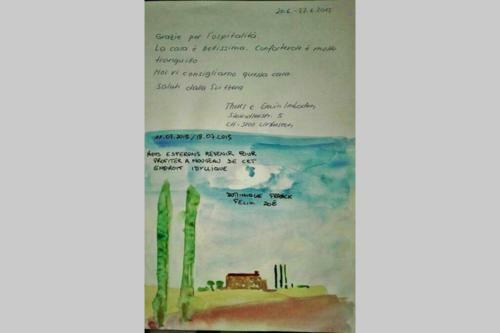 20.6. - 27.6.2015
Grazie per l'ospitalità
La casa è bellissima. Confortevole e molto
tranquillo
Noi vi consigliamo questa casa
Saluti dalla Svizzera
5
CH-3700
11.07.2015/18.07.2015
NOUS ESPERONS REVENIR POUR
PROFITER A NOUVEAU DE CET
ENDROIT IDYLLIQUE
DOMINIQUE FRANCK
FELIX ZOË